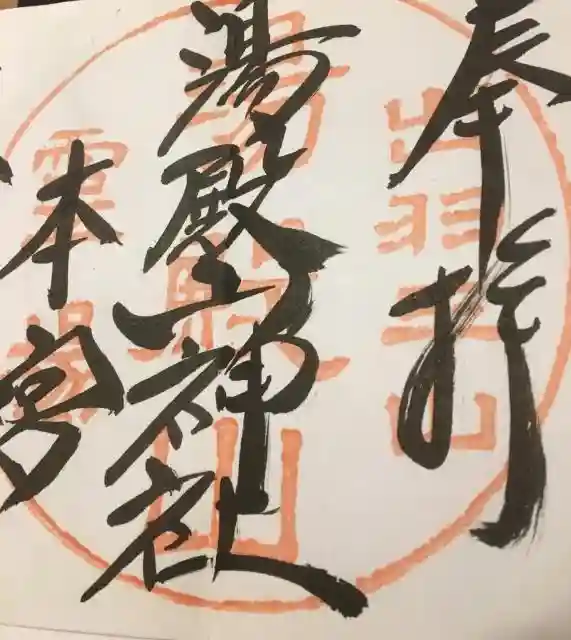 奉拝
湯殿山神社
本宮
出羽三山
湯殿山
霊場